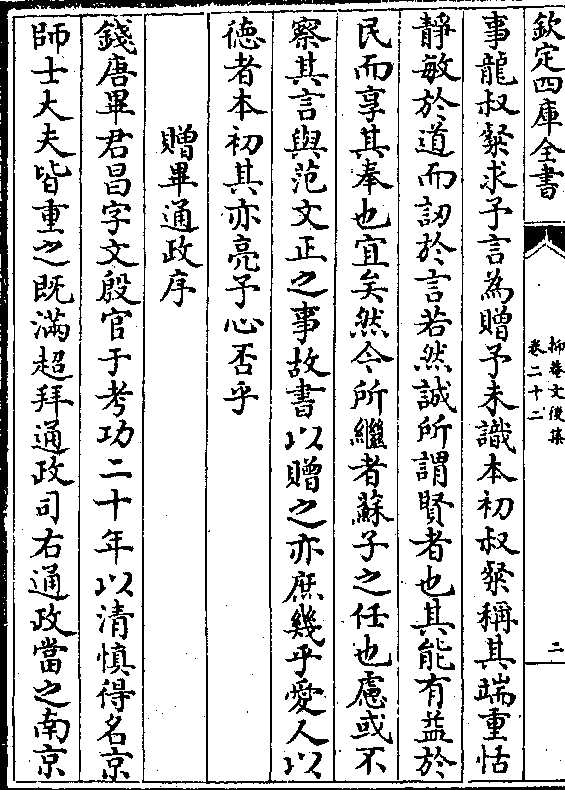 欽定四庫全書
抑菴文後集
卷二十二
二
事龍叔粲求予言為贈予未識本初叔粲稱其端重恬
靜敏於道而訒於言若然誠所謂賢者也其能有益於
民而享其奉也宜矣然今所繼者蘇子之任也慮或不
察其言與范文正之事故書以贈之亦庶幾乎愛人以
德者本初其亦亮予心否乎
贈畢通政序
錢唐畢君昌字文殷官于考功二十年以清慎得名京
師士大夫皆重之既滿超拜通政司右通政當之南京